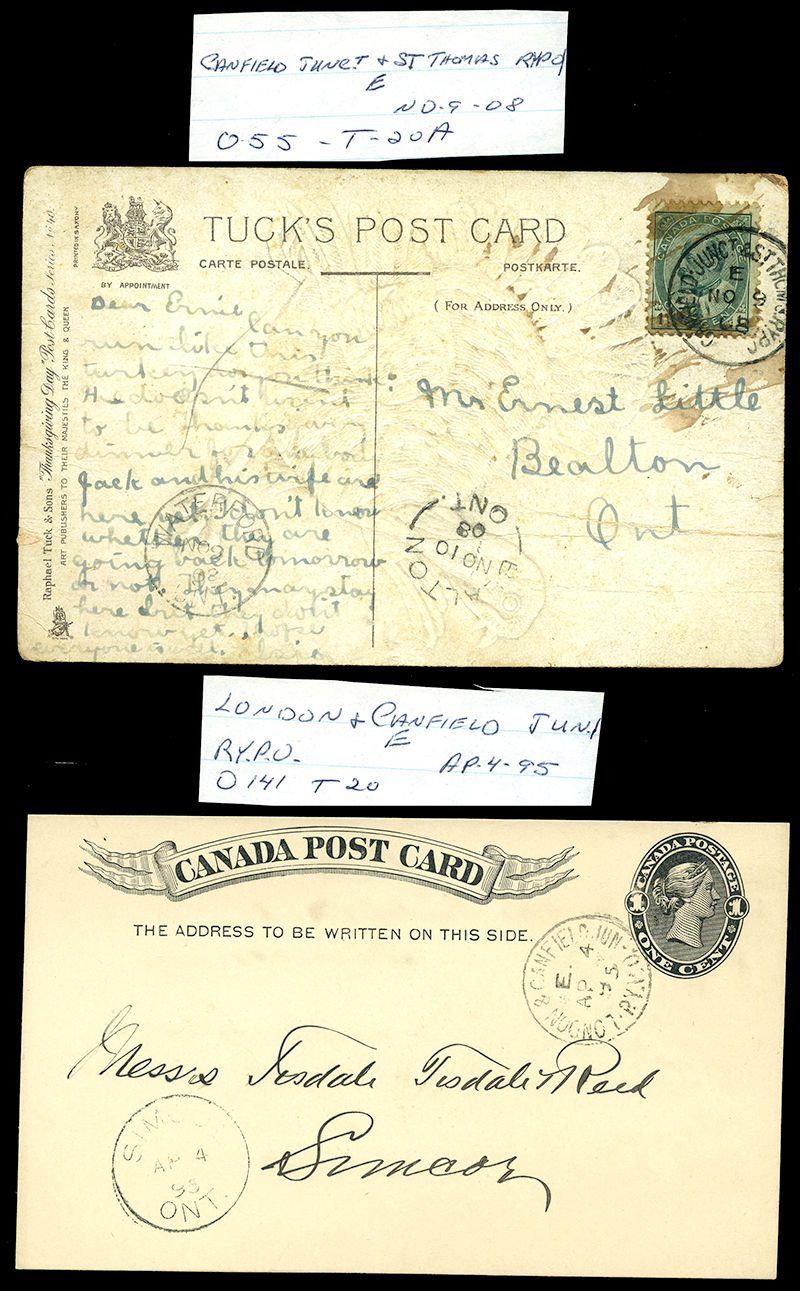 CANFIELD JUNC.T & ST THOMAS RYPO
E
NO-9-08
O-55 - T-20A
PRINTED IN SAXONY
BY APPOINTMENT
TUCK'S POST CARD
CARTE POSTALE.
POSTKARTE.
( FOR ADDRESS ONLY. )
Raphael Tuck & Sons "Thanksgiving Day" Post Cards Series No 40.
ART PUBLISHERS TO THEIR MAJESTIES THE KING & QUEEN
CANADA POSTAGE
CANFIELD JUNCT & ST THOM RYPO
E
NO 9
Dear Ernie
Can you
run like this
turkey can you think
He doesn't want
to be Thanksgiving
dinner for
Jack and his wife are
here yet. I don't know
whether they are
going back tomorrow
or not. They may stay
here but they don't
know yet. hope
everyone is well.
Mr Ernest Little
Bealton
Ont
WATERFORD
NO 9
08
ONT
ALTON
NO 10
08
ONT.
LONDON & CANFIELD JUN.
E
RY.P.O. AP-4-95
O 141 T 20
CANADA POST CARD
THE ADDRESS TO BE WRITTEN ON THIS SIDE.
CANADA POSTAGE
1 1
ONE CENT
LONDON & CANFIELD JUN. RY.P.O.
E.
AP 4
95
Messrs Tisdale Tisdale & Reed
Simcoe
SIMCOE
AP 4
95
ONT.